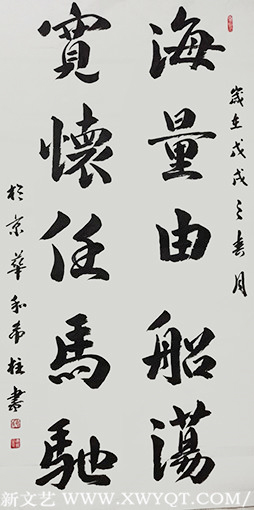 歲在戊戌之春月
海量由船蕩
寬懷任馬馳
於京華和希柱書
新文艺 WWW.XWYQT.COM